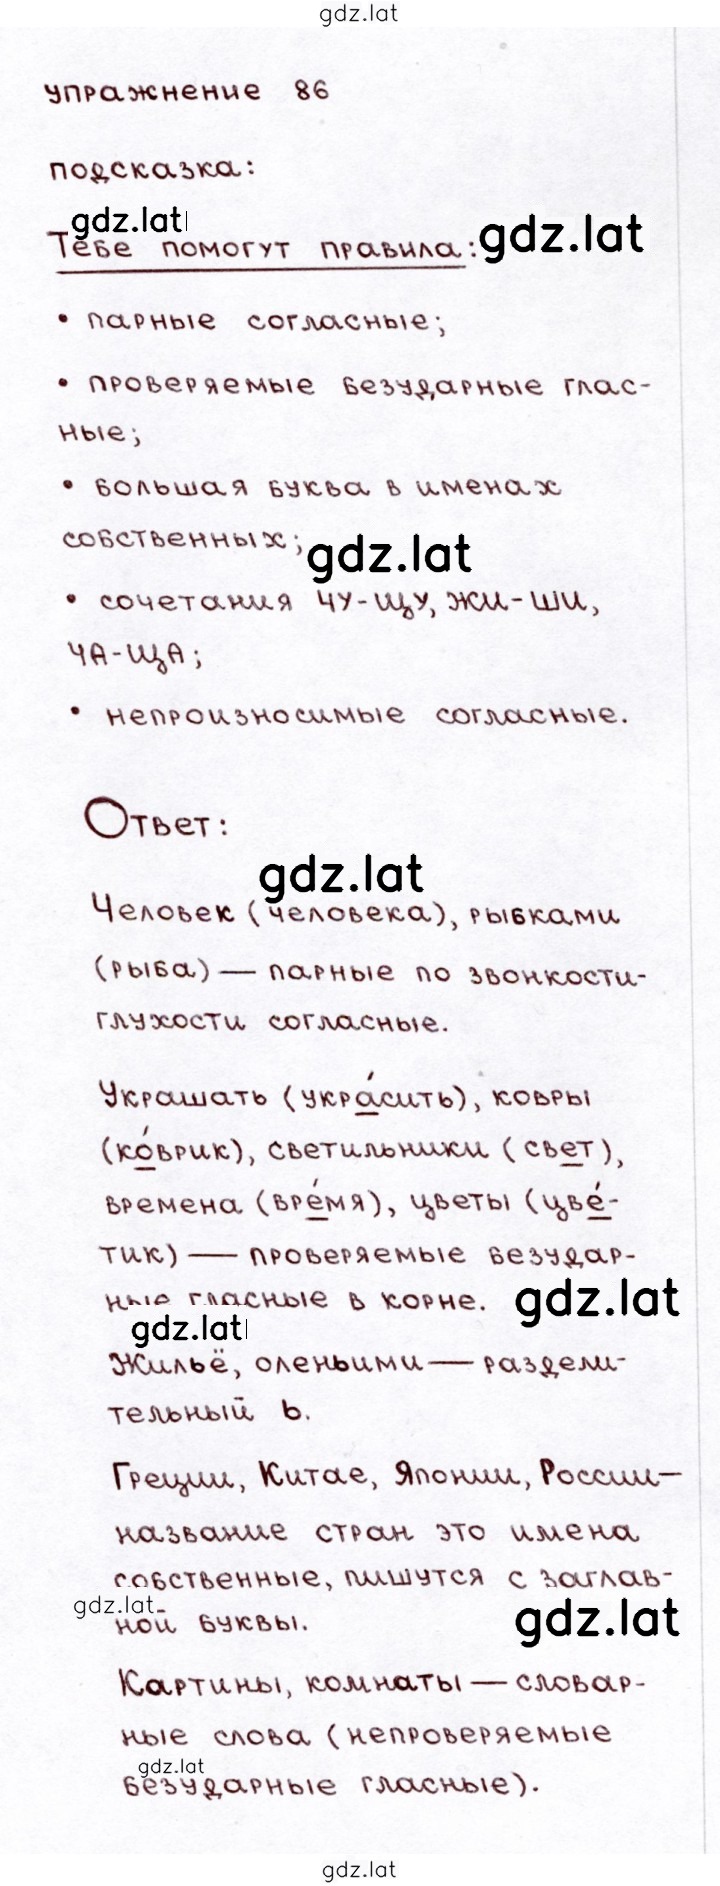 gdz.lat
упражнение 86
подсказка:
gdz.lat
Тебе помогут правила: gdz.lat
• парные согласные;
• проверяемые безударные глас-
ные;
• большая буква в именах
собственных; gdz.lat
• сочетания ЧУ-ЩУ, ЖИ-ШИ,
ЧА-ЩА;
• непроизносимые согласные.
Ответ:
gdz.lat
Человек (человека), рыбками
(рыба) — парные по звонкости-
глухости согласные.
Украшать (укра́сить), ковры
(ко́врик), светильники (свет),
времена (вре́мя), цветы (цве́-
тик) — проверяемые безудар-
ные гласные в корне. gdz.lat
gdz.lat
Жильё, оленьими — раздели-
тельный ь.
Греции, Китае, Японии, России —
название стран это имена
собственные, пишутся с заглав-
gdz.lat
ной буквы. gdz.lat
Картины, комнаты — словар-
ные слова (непроверяемые
gdz.lat
безударные гласные).
gdz.lat